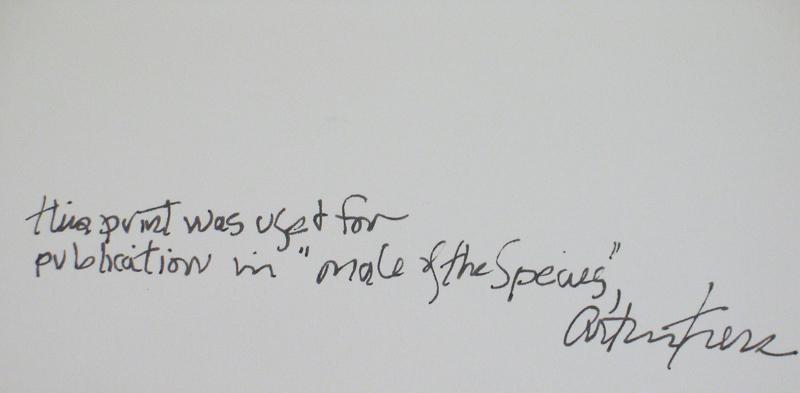 this print was used for
publication in "male of the Species",
Arthur Tress